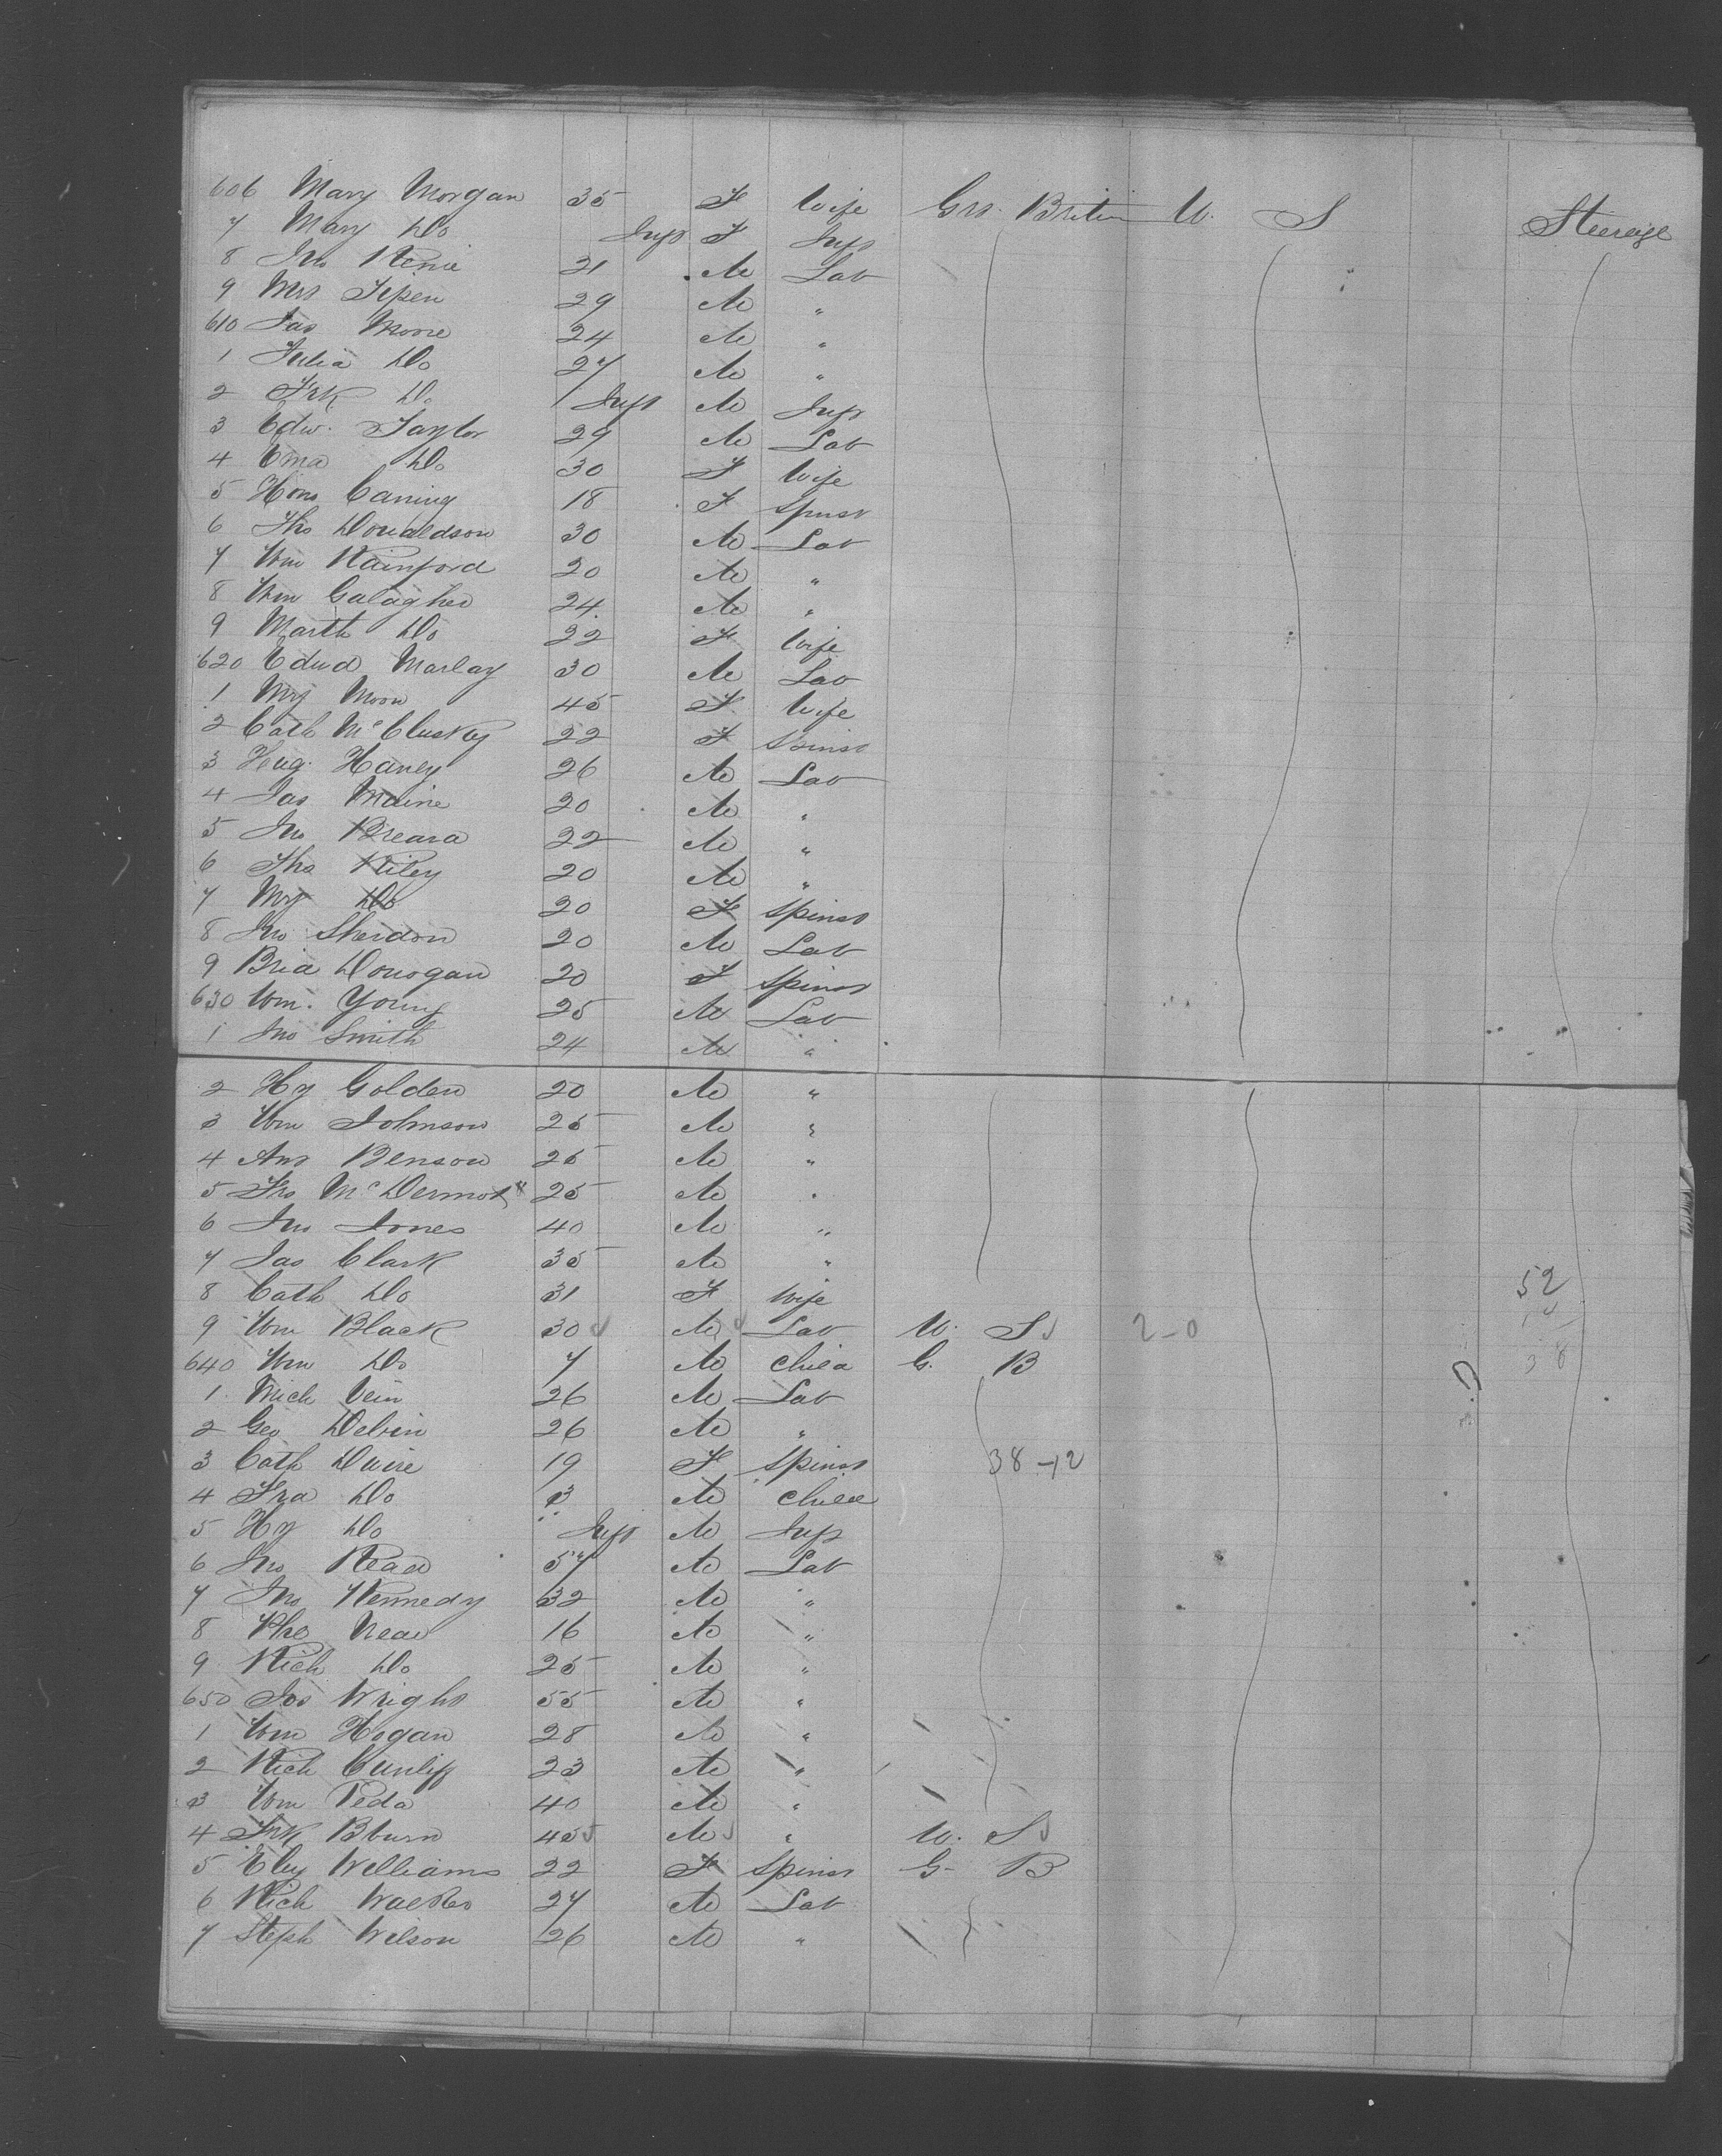 606 Mary Morgan 35 F Wife Grt. Britin U. S Steerage
7 Mary Do Inft F Inft
8 Jno 21 M Lab
9 Mrs 29 M "
610 Jas Moore 24 M "
1 Julia Do 27 M "
2 Frk Do Inft M Inft
3 Edw. Taylor 29 M Lab
4 Ema Do 30 F Wife
5 Caning 18 F Spnst
6 Ths Donaldson 30 M Lab
7 Wm Rainford 20 M "
8 Wm Galagher 24 M "
9 Marth Do 22 F Wife
620 Edwd Marlay 30 M Lab
1 Mry Moon 45 F Wife
2 Cath McClusky 22 F Spinst
3 Hug. Haney 26 M Lab
4 Jas Maine 20 M "
5 Jno Breara 22 M "
6 Ths Riley 20 M "
7 Mry Do 20 F Spinst
8 Jno Sherdon 20 M Lab
9 Bria Donogan 20 F Spinst
630 Wm. Young 25 M Lab
1 Jno Smith 24 M "
2 Hy Golden 20 M "
3 Wm Johnson 25 M "
4 Benson 25 M "
5 Frs McDermot 25 M "
6 Jno Jones 40 M "
7 Jas Clark 35 M "
8 Cath Do 31 F Wife 52
9 Wm Black 30 M Lab U. S 2-0 14
640 Wm Do 7 M Child G. B 38
1 Mich Vein 26 M Lab
2 Geo Delvin 26 M "
3 Cath Dwire 19 F Spinst 38-12
4 Fra Do 3 M Child
5 Hy Do Inft M Inft
6 Jno Read 57 M Lab
7 Jno Kennedy 32 M "
8 16 M "
9 Rich Do 25 M "
650 Jos Wright 55 M "
1 Wm Hogan 28 M "
2 Rich Cunliff 23 M "
3 Wm Peda 40 M "
4 Frk Bburn 45 M " U. S
5 Eliz Williams 22 F Spinst G. B
6 Rich Walker 27 M Lab
7 Steph Wilson 26 M "